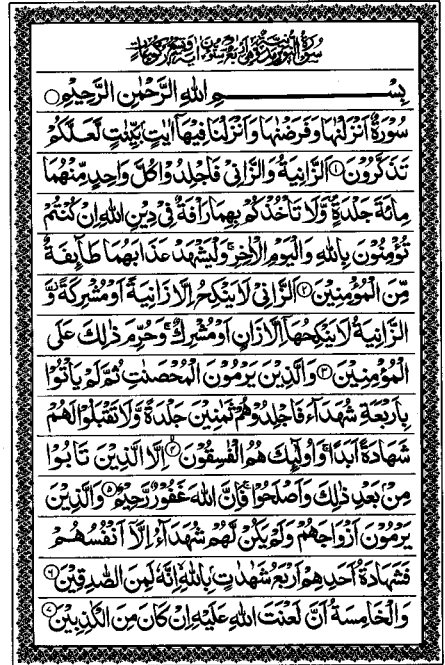 سُوْرَةُ النُّوْرِ مَدَنِيَّةٌ وَّهِيَ اَرْبَعٌ وَّسِتُّوْنَ اٰيَةً وَّتِسْعُ رُكُوْعَاتٍ
بِسْمِ اللهِ الرَّحْمٰنِ الرَّحِيْمِ
سُوْرَةٌ اَنْزَلْنٰهَا وَفَرَضْنٰهَا وَاَنْزَلْنَا فِيْهَاۤ اٰيٰتٍۭ بَيِّنٰتٍ لَّعَلَّكُمْ
تَذَكَّرُوْنَ ۝۱ اَلزَّانِيَةُ وَالزَّانِيْ فَاجْلِدُوْا كُلَّ وَاحِدٍ مِّنْهُمَا
مِائَةَ جَلْدَةٍ وَّلَا تَاْخُذْكُمْ بِهِمَا رَاْفَةٌ فِيْ دِيْنِ اللهِ اِنْ كُنْتُمْ
تُؤْمِنُوْنَ بِاللهِ وَالْيَوْمِ الْاٰخِرِ وَلْيَشْهَدْ عَذَابَهُمَا طَآىِٕفَةٌ
مِّنَ الْمُؤْمِنِيْنَ ۝۲ اَلزَّانِيْ لَا يَنْكِحُ اِلَّا زَانِيَةً اَوْ مُشْرِكَةً وَّ
الزَّانِيَةُ لَا يَنْكِحُهَاۤ اِلَّا زَانٍ اَوْ مُشْرِكٌ وَحُرِّمَ ذٰلِكَ عَلَى
الْمُؤْمِنِيْنَ ۝۳ وَالَّذِيْنَ يَرْمُوْنَ الْمُحْصَنٰتِ ثُمَّ لَمْ يَاْتُوْا
بِاَرْبَعَةِ شُهَدَآءَ فَاجْلِدُوْهُمْ ثَمٰنِيْنَ جَلْدَةً وَّلَا تَقْبَلُوْا لَهُمْ
شَهَادَةً اَبَدًا وَاُولٰٓىِٕكَ هُمُ الْفٰسِقُوْنَ ۝۴ اِلَّا الَّذِيْنَ تَابُوْا
مِنْۢ بَعْدِ ذٰلِكَ وَاَصْلَحُوْا فَاِنَّ اللهَ غَفُوْرٌ رَّحِيْمٌ ۝۵ وَالَّذِيْنَ
يَرْمُوْنَ اَزْوَاجَهُمْ وَلَمْ يَكُنْ لَّهُمْ شُهَدَآءُ اِلَّاۤ اَنْفُسُهُمْ
فَشَهَادَةُ اَحَدِهِمْ اَرْبَعُ شَهٰدٰتٍۭ بِاللهِ اِنَّهٗ لَمِنَ الصّٰدِقِيْنَ ۝۶
وَالْخَامِسَةُ اَنَّ لَعْنَتَ اللهِ عَلَيْهِ اِنْ كَانَ مِنَ الْكٰذِبِيْنَ ۝۷